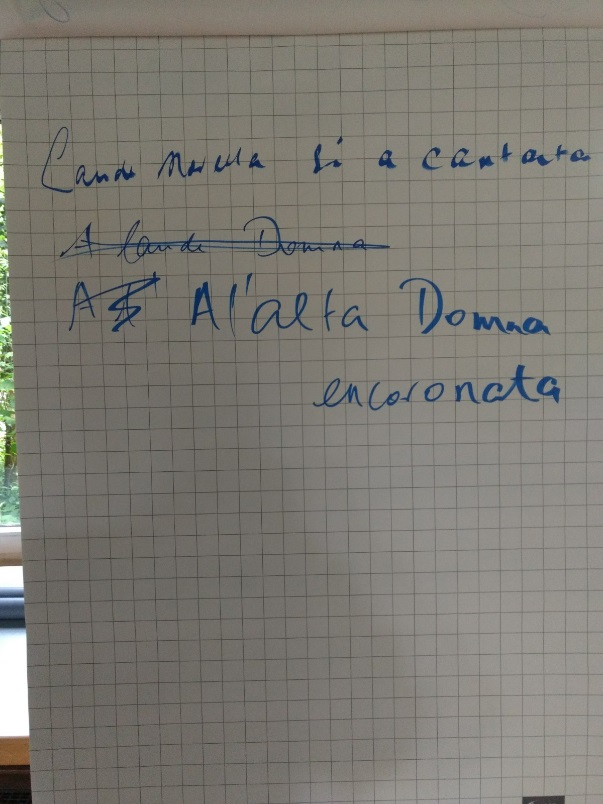 Laude novella si a cantata
A laude Domna
A A l'alta Domna
encoronata